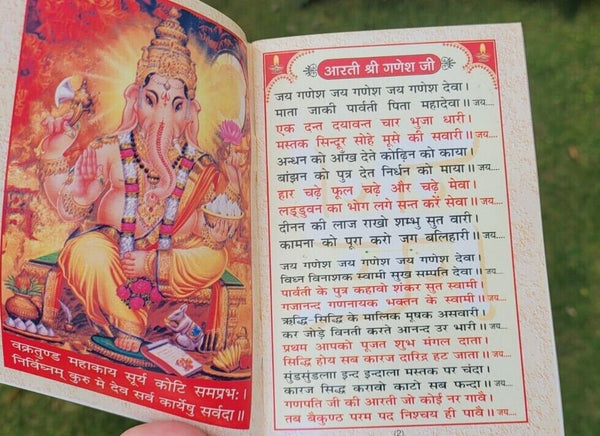 वक्रतुण्ड महाकाय सूर्य कोटि समप्रभः।
निर्विघ्नम् कुरु मे देव सर्व कार्येषु सर्वदा॥
आरती श्री गणेश जी
जय गणेश जय गणेश जय गणेश देवा।
माता जाकी पार्वती पिता महादेवा॥ जय....
एक दन्त दयावन्त चार भुजा धारी।
मस्तक सिन्दूर सोहे मूसे की सवारी॥ जय....
अन्धन को आँख देते कोढ़िन को काया।
बांझन को पुत्र देत निर्धन को माया॥ जय....
हार चढ़े फूल चढ़े और चढ़े मेवा।
लड्डुवन का भोग लगे सन्त करें सेवा॥ जय....
दीनन की लाज राखो शम्भु सुत वारी।
कामना को पूरा करो जग बलिहारी॥ जय....
जय गणेश जय गणेश जय गणेश देवा।
विघ्न विनाशक स्वामी सुख सम्पति देवा॥ जय....
पार्वती के पुत्र कहावो शंकर सुत स्वामी।
गजानन्द गणनायक भक्तन के स्वामी॥ जय....
ऋद्धि-सिद्धि के मालिक मूषक असवारी।
कर जोड़े विनती करते आनन्द उर भारी॥ जय....
प्रथम आपको पूजत शुभ मंगल दाता।
सिद्धि होय सब कारज दारिद्र हट जाता॥ जय....
सुंडसुंडला इन्द इन्डाला मस्तक पर चंदा।
कारज सिद्ध करावो काटो सब फन्दा॥ जय....
गणपति जी की आरती जो कोई नर गावै।
तब बैकुण्ठ परम पद निश्चय ही पावै॥ जय....
(2)